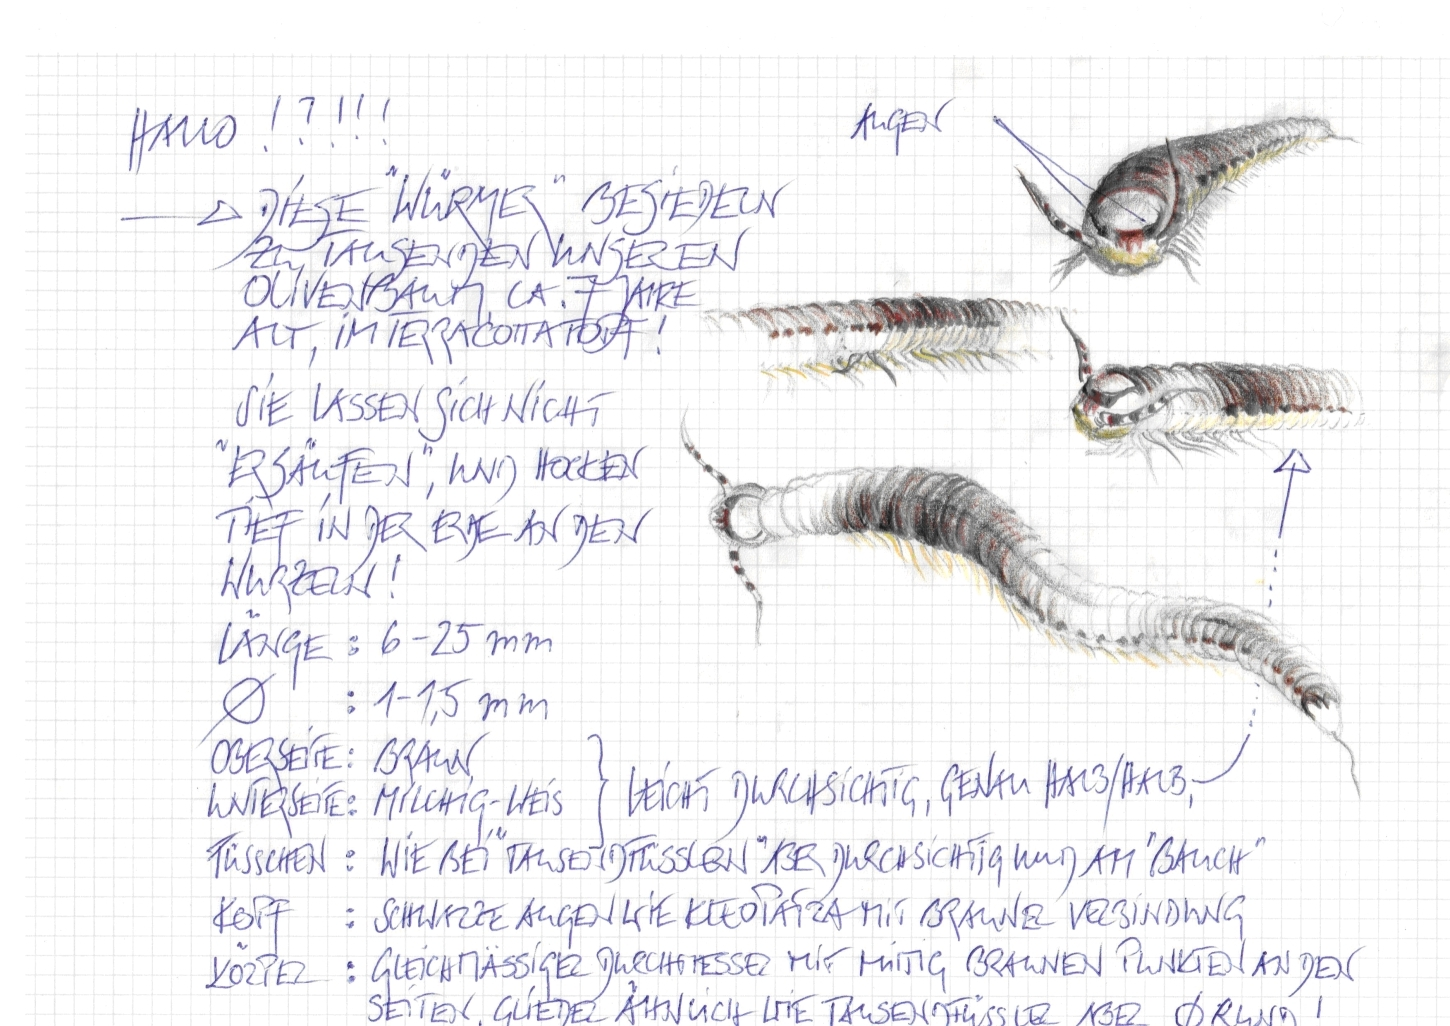 HALLO !?!!!
AUGEN
DIESE "WÜRMER" BESIEDELN
ZU TAUSENDEN UNSEREN
OLIVENBAUM, CA. 7 JAHRE
ALT, IM TERRACOTTATOPF!
SIE LASSEN SICH NICHT
"ERSÄUFEN", UND HOCKEN
TIEF IN DER ERDE AN DEN
WURZELN!
LÄNGE : 6-25 mm
Ø : 1-1,5 mm
OBERSEITE: BRAUN
UNTERSEITE: MILCHIG-WEIS } LEICHT DURCHSICHTIG, GENAU HALB/HALB,
FÜSSCHEN : WIE BEI "TAUSENDFÜSSLERN" ABER DURCHSICHTIG UND AM "BAUCH"
KOPF : SCHWARZE AUGEN WIE KLEOPATRA MIT BRAUNER VERBINDUNG
KÖRPER : GLEICHMÄSSIGER DURCHMESSER MIT MITTIG BRAUNEN PUNKTEN AN DEN
SEITEN, GLIEDER ÄHNLICH WIE TAUSENDFÜSSLER ABER Ø RUND!